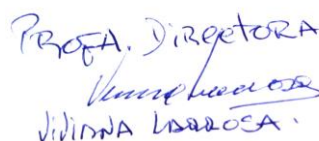 PROFA. DIRECTORA
VIVIANA LARROSA.